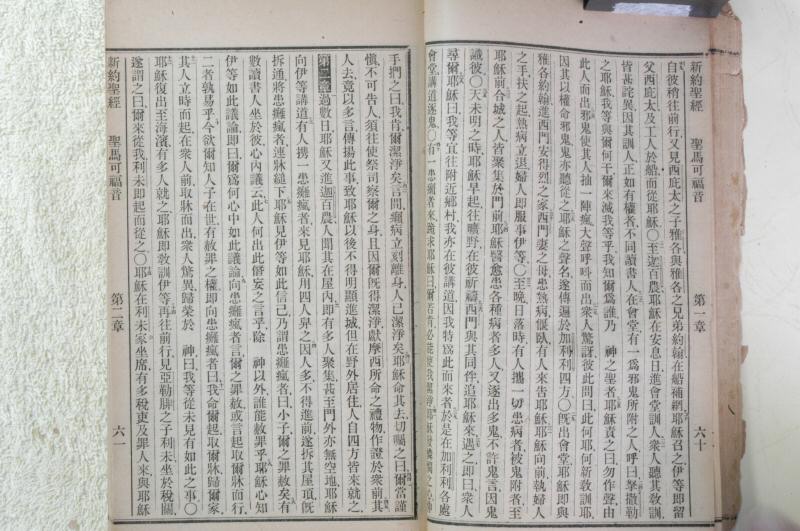 新約聖經　聖馬可福音　第一章　六十
自彼稍往前行、又見西庇太之子雅各、與雅各之兄弟約翰、在船補網、耶穌召之、伊等即留
父西庇太及工人於船而從耶穌〇至迦百農、耶穌在安息日、進會堂訓人、衆人聽其敎訓、
皆甚詫異、因其訓人、正如有權者、不同讀書人、在會堂有一爲邪鬼所附之人、呼曰、
之耶穌、我等與爾何干、爾來滅我等乎、我知爾爲誰、乃　神之聖者、耶穌責之曰、勿作聲、由
此人而出、邪鬼使其人抽一陣瘋、大聲呼呌而出、衆人驚訝、彼此問曰、此何耶、何新敎訓耶、
因其以權命邪鬼、鬼亦聽從之、耶穌之聲名、遂傳遍於加利利四方〇既出會堂、耶穌即與
雅各約翰、進西門安得烈之家、西門妻之母、患熱病偃臥、有人來告耶穌、耶穌向前、執婦人
之手、扶之起、熱病立退、婦人即服事伊等〇至晚日落時、有人攜一切患病者、被鬼附者、至
耶穌前、合城之人、皆聚集於門前、耶穌醫愈患各種病者多人、又逐出多鬼、不許鬼言、因鬼
識彼〇天未明之時、耶穌早起、往曠野、在彼祈禱、西門與其同伴、追耶穌來、遇之、即曰、衆人
尋爾、耶穌曰、我等宜往附近鄉村、我亦在彼講道、因我特爲此而來者、於是在加利利各處
會堂、講道逐鬼〇有一患癩者來、跪求耶穌曰、爾若肯、必能使我
手捫之曰、我肯、爾潔淨矣、言間、癩病立刻離身、人已潔淨矣、耶穌命其去、切囑之曰、爾當謹
愼、不可告人、須往使祭司察爾之身、且因爾既得潔淨、獻摩西所命之禮物、作證於衆前、其
人去、竟以多言傳揚此事、致耶穌以後不得明顯進城、但在野外居住、人自四方皆來就之、
第二章　過數日、耶穌又進迦百農、人聞其在屋內、即有多人聚集、甚至門外亦無空地、耶穌
向伊等講道、有人攜一患癱瘓者、來見耶穌、用四人舁之、因人多不得進前、遂拆其屋頂、既
拆通、將患癱瘓者、連牀縋下、耶穌見伊等如此信己、乃謂患癱瘓者曰、小子、爾之罪赦矣、有
數讀書人坐於彼、心內議云、此人何出此僭妄之言乎、除　神以外、誰能赦罪乎、耶穌心知
伊等如此議論、即曰、爾爲何心中如此議論、向患癱瘓者言、爾之罪赦、或言起取爾牀而行、
二者孰易乎、今欲爾知人子在世、有赦罪之權、即向患癱瘓者曰、我命爾起取爾牀歸爾家、
其人立時而起、在衆人前、取牀而出、衆人驚異、歸榮於　神曰、我等從未見有如此之事〇
耶穌復出至海濱、有多人就之、耶穌即敎訓伊等、再往前行、見亞勒腓之子利未、坐於稅關、
遂謂之曰、爾來從我、利未即起而從之〇耶穌在利未家坐席、有多稅吏及罪人、來與耶穌
新約聖經　聖馬可福音　第二章　六一